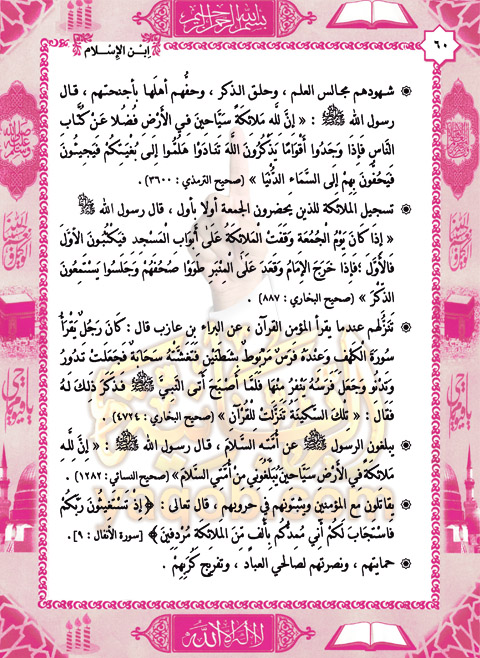 بسم الله الرحمن الرحيم
٦٠
ابن الإسلام
شهودهم مجالس العلم ، وحلق الذكر ، وحفُّهم أهلَها بأجنحتهم ، قال
رسول الله ﷺ : « إنَّ للَّه مَلائكَةً سَيَّاحينَ فِي الأَرْضِ فُضُلا عَنْ كُتَّاب
النَّاسِ فَإِذَا وَجَدُوا أَقْوَامًا يَذْكُرُونَ اللَّهَ تَنَادَوْا هَلُمُّوا إلى بُغْيَتكُمْ فَيَجِيئُونَ
فَيَحُفُّونَ بِهِمْ إلى السَّمَاءِ الدُّنْيَا » (صحيح الترمذي : ٣٦٠٠) .
تسجيل الملائكة للذين يحضرون الجمعة أولا بأول ، قال رسول الله ﷺ
« إذا كَانَ يَوْمُ الْجُمُعَة وَقَفَتْ الْمَلائكَةُ عَلَى أَبْوَاب الْمَسْجد فَيَكْتُبُونَ الأَوَّلَ
فالأَوَّلَ ؛فإذا خَرَجَ الإمَامُ وَقَعَدَ عَلَى الْمنْبَرِ طَوَوْا صُحُفَهُمْ وَجَلَسُوا يَسْتَمِعُونَ
الذِّكْرَ » (صحيح البخاري : ٨٨٧) .
تَنَزُّلهم عندما يقرأ المؤمن القرآن ، عن البراء بن عازب قال : كَانَ رَجُلٌ يَقْرَأُ
سُورَةَ الْكَهْف وَعنْدَهُ فَرَسٌ مَرْبُوطٌ بشَطَنَيْنِ فَتَغَشَّتْهُ سَحَابَةٌ فَجَعَلَتْ تَدُورُ
وَتَدْنُو وَجَعَلَ فَرَسُهُ يَنْفِرُ مِنْهَا فَلَمَّا أَصْبَحَ أَتَى النَّبيَّ ﷺ فَذَكَرَ ذَلكَ لَهُ
فَقَالَ : « تلْكَ السَّكينَةُ تَنَزَّلَتْ للْقُرْآنِ » (صحيح البخاري : ٤٧٢٤) .
يبلغون الرسول ﷺ عن أُمَّته السَّلامَ ، قال رسول الله ﷺ : « إنَّ للَّه
مَلائكَةً في الأَرْضِ سَيَّاحينَ يُبَلِّغُوني منْ أُمَّتي السَّلامَ» (صحيح النسائي : ١٢٨٢) .
يقاتلون مع المؤمنين ويثبتونهم في حروبهم ، قال تعالى : ﴿إذْ تَسْتَغيثُونَ رَبَّكُمْ
فَاسْتَجَابَ لَكُمْ أَنِّي مُمدُّكُم بأَلْف مّنَ المَلائكَة مُرْدفينَ﴾ [سورة الأنفال : ٩] .
حمايتهم ، ونصرتهم لصالحي العباد ، وتفريج كُرَبِهِمْ .
yaqob.com
لا إله إلا الله